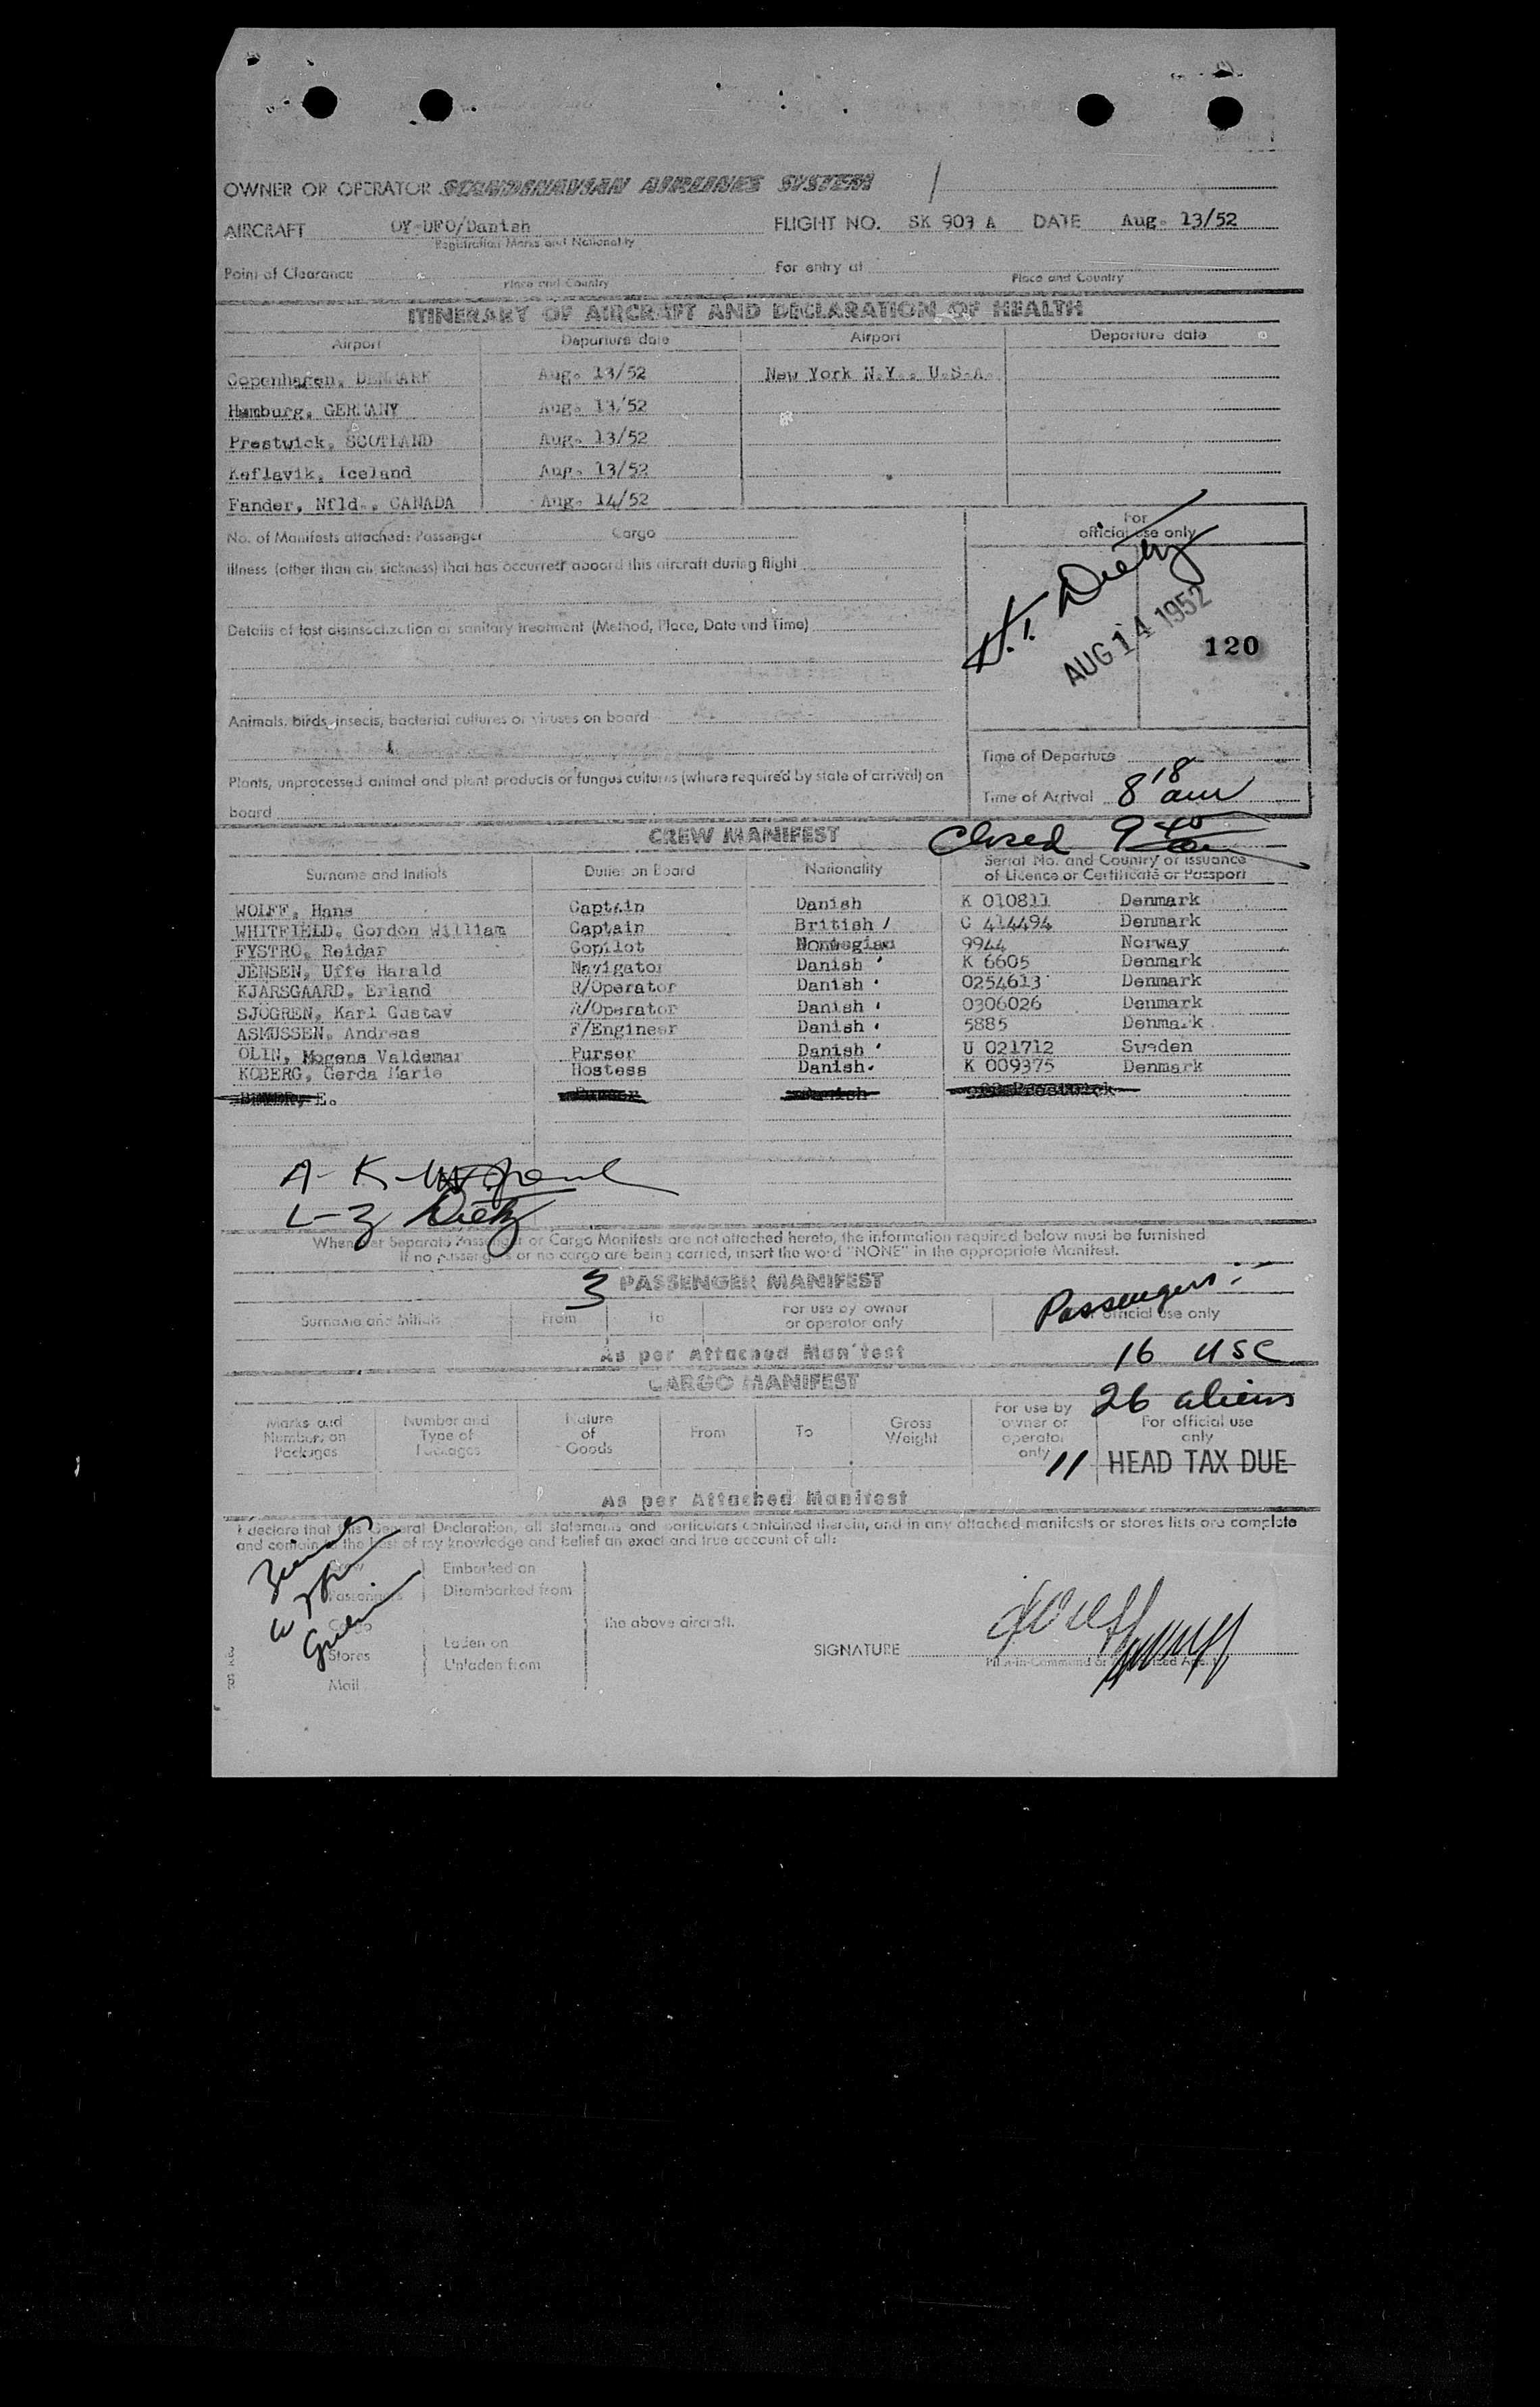 OWNER OR OPERATOR SCANDINAVIAN AIRLINES SYSTEM
AIRCRAFT OY-DFO/Danish FLIGHT NO. SK 903 A DATE Aug. 13/52
Registration Marks and Nationality
Point of Clearance For entry at
Place and Country Place and Country
ITINERARY OF AIRCRAFT AND DECLARATION OF HEALTH
Airport Departure date Airport Departure date
Copenhagen, DENMARK Aug. 13/52 New York N.Y., U.S.A.
Hamburg, GERMANY Aug. 13/52
Prestwick, SCOTLAND Aug. 13/52
Keflavik, Iceland Aug. 13/52
Fander, Nfld., CANADA Aug. 14/52
No. of Manifests attached: Passenger Cargo
For
official use only
Illness (other than air sickness) that has occurred aboard this aircraft during flight
Details of last disinsectization or sanitary treatment (Method, Place, Date and Time)
H.T. Dietz
AUG 14 1952
120
Animals, birds, insects, bacterial cultures or viruses on board
Plants, unprocessed animal and plant products or fungus cultures (where required by state of arrival) on
board
Time of Departure
Time of Arrival 8 18 am
CREW MANIFEST Closed 9 40
Surname and Initials Duties on Board Nationality Serial No. and Country of issuance
of Licence or Certificate or Passport
WOLFF, Hans Captain Danish K 010811 Denmark
WHITFIELD, Gordon William Captain British / C 414494 Denmark
FYSTRO, Reidar Copilot Norwegian 9944 Norway
JENSEN, Uffe Harald Navigator Danish K 6605 Denmark
KJARSGAARD, Erland R/Operator Danish 0254613 Denmark
SJOGREN, Karl Gustav R/Operator Danish 0306026 Denmark
ASMUSSEN, Andreas F/Engineer Danish 5885 Denmark
OLIN, Mogens Valdemar Purser Danish U 021712 Sweden
KOBERG, Gerda Marie Hostess Danish K 009375 Denmark
E.
A-K
L-Z Dietz
Whenever Separate Passenger or Cargo Manifests are not attached hereto, the information required below must be furnished
If no passengers or no cargo are being carried, insert the word "NONE" in the appropriate Manifest.
3 PASSENGER MANIFEST
Passengers:-
Surname and Initials From To For use by owner
or operator only official use only
As per Attached Manifest
16 USC
CARGO MANIFEST
26 aliens
Marks and
Numbers on
Packages Number and
Type of
Packages Nature
of
Goods From To Gross
Weight For use by
owner or
operator
only For official use
only
11 HEAD TAX DUE
As per Attached Manifest
I declare that this General Declaration, all statements and particulars contained therein, and in any attached manifests or stores lists are complete
and contain to the best of my knowledge and belief an exact and true account of all:
Crew Embarked on
Passengers Disembarked from
Cargo the above aircraft.
Stores Laden on
Unladen from
Mail
SIGNATURE
Pilot-in-Command or Authorized Agent